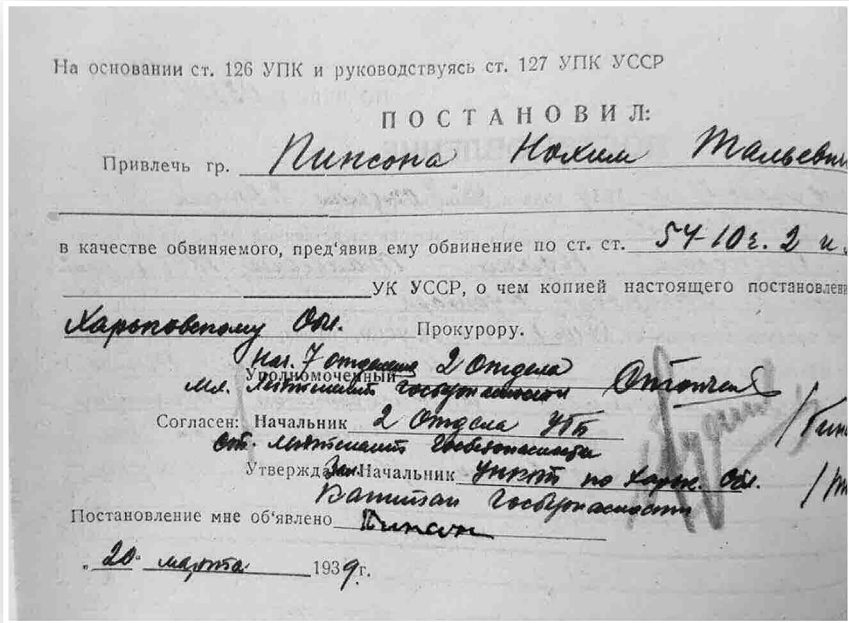 На основании ст. 126 УПК и руководствуясь ст. 127 УПК УССР
ПОСТАНОВИЛ:
Привлечь гр. Пинсона Нохим Тальеви
в качестве обвиняемого, пред'явив ему обвинение по ст. ст. 54-10 ч. 2 и
УК УССР, о чем копией настоящего постановлени
Харьковскому Обл. Прокурору.
Нач. 7 отделения 2 Отдела
Уполномоченный
мл. Лейтенант Госбезопасности
Согласен: Начальник 2 Отдела УГБ
ст. лейтенант Госбезопасности
Утвержд Зам. Начальник УНКВД по Харьк. Обл.
Капитан Госбезопасности
Постановление мне об'явлено Пинсон
„20" марта 1939 г.